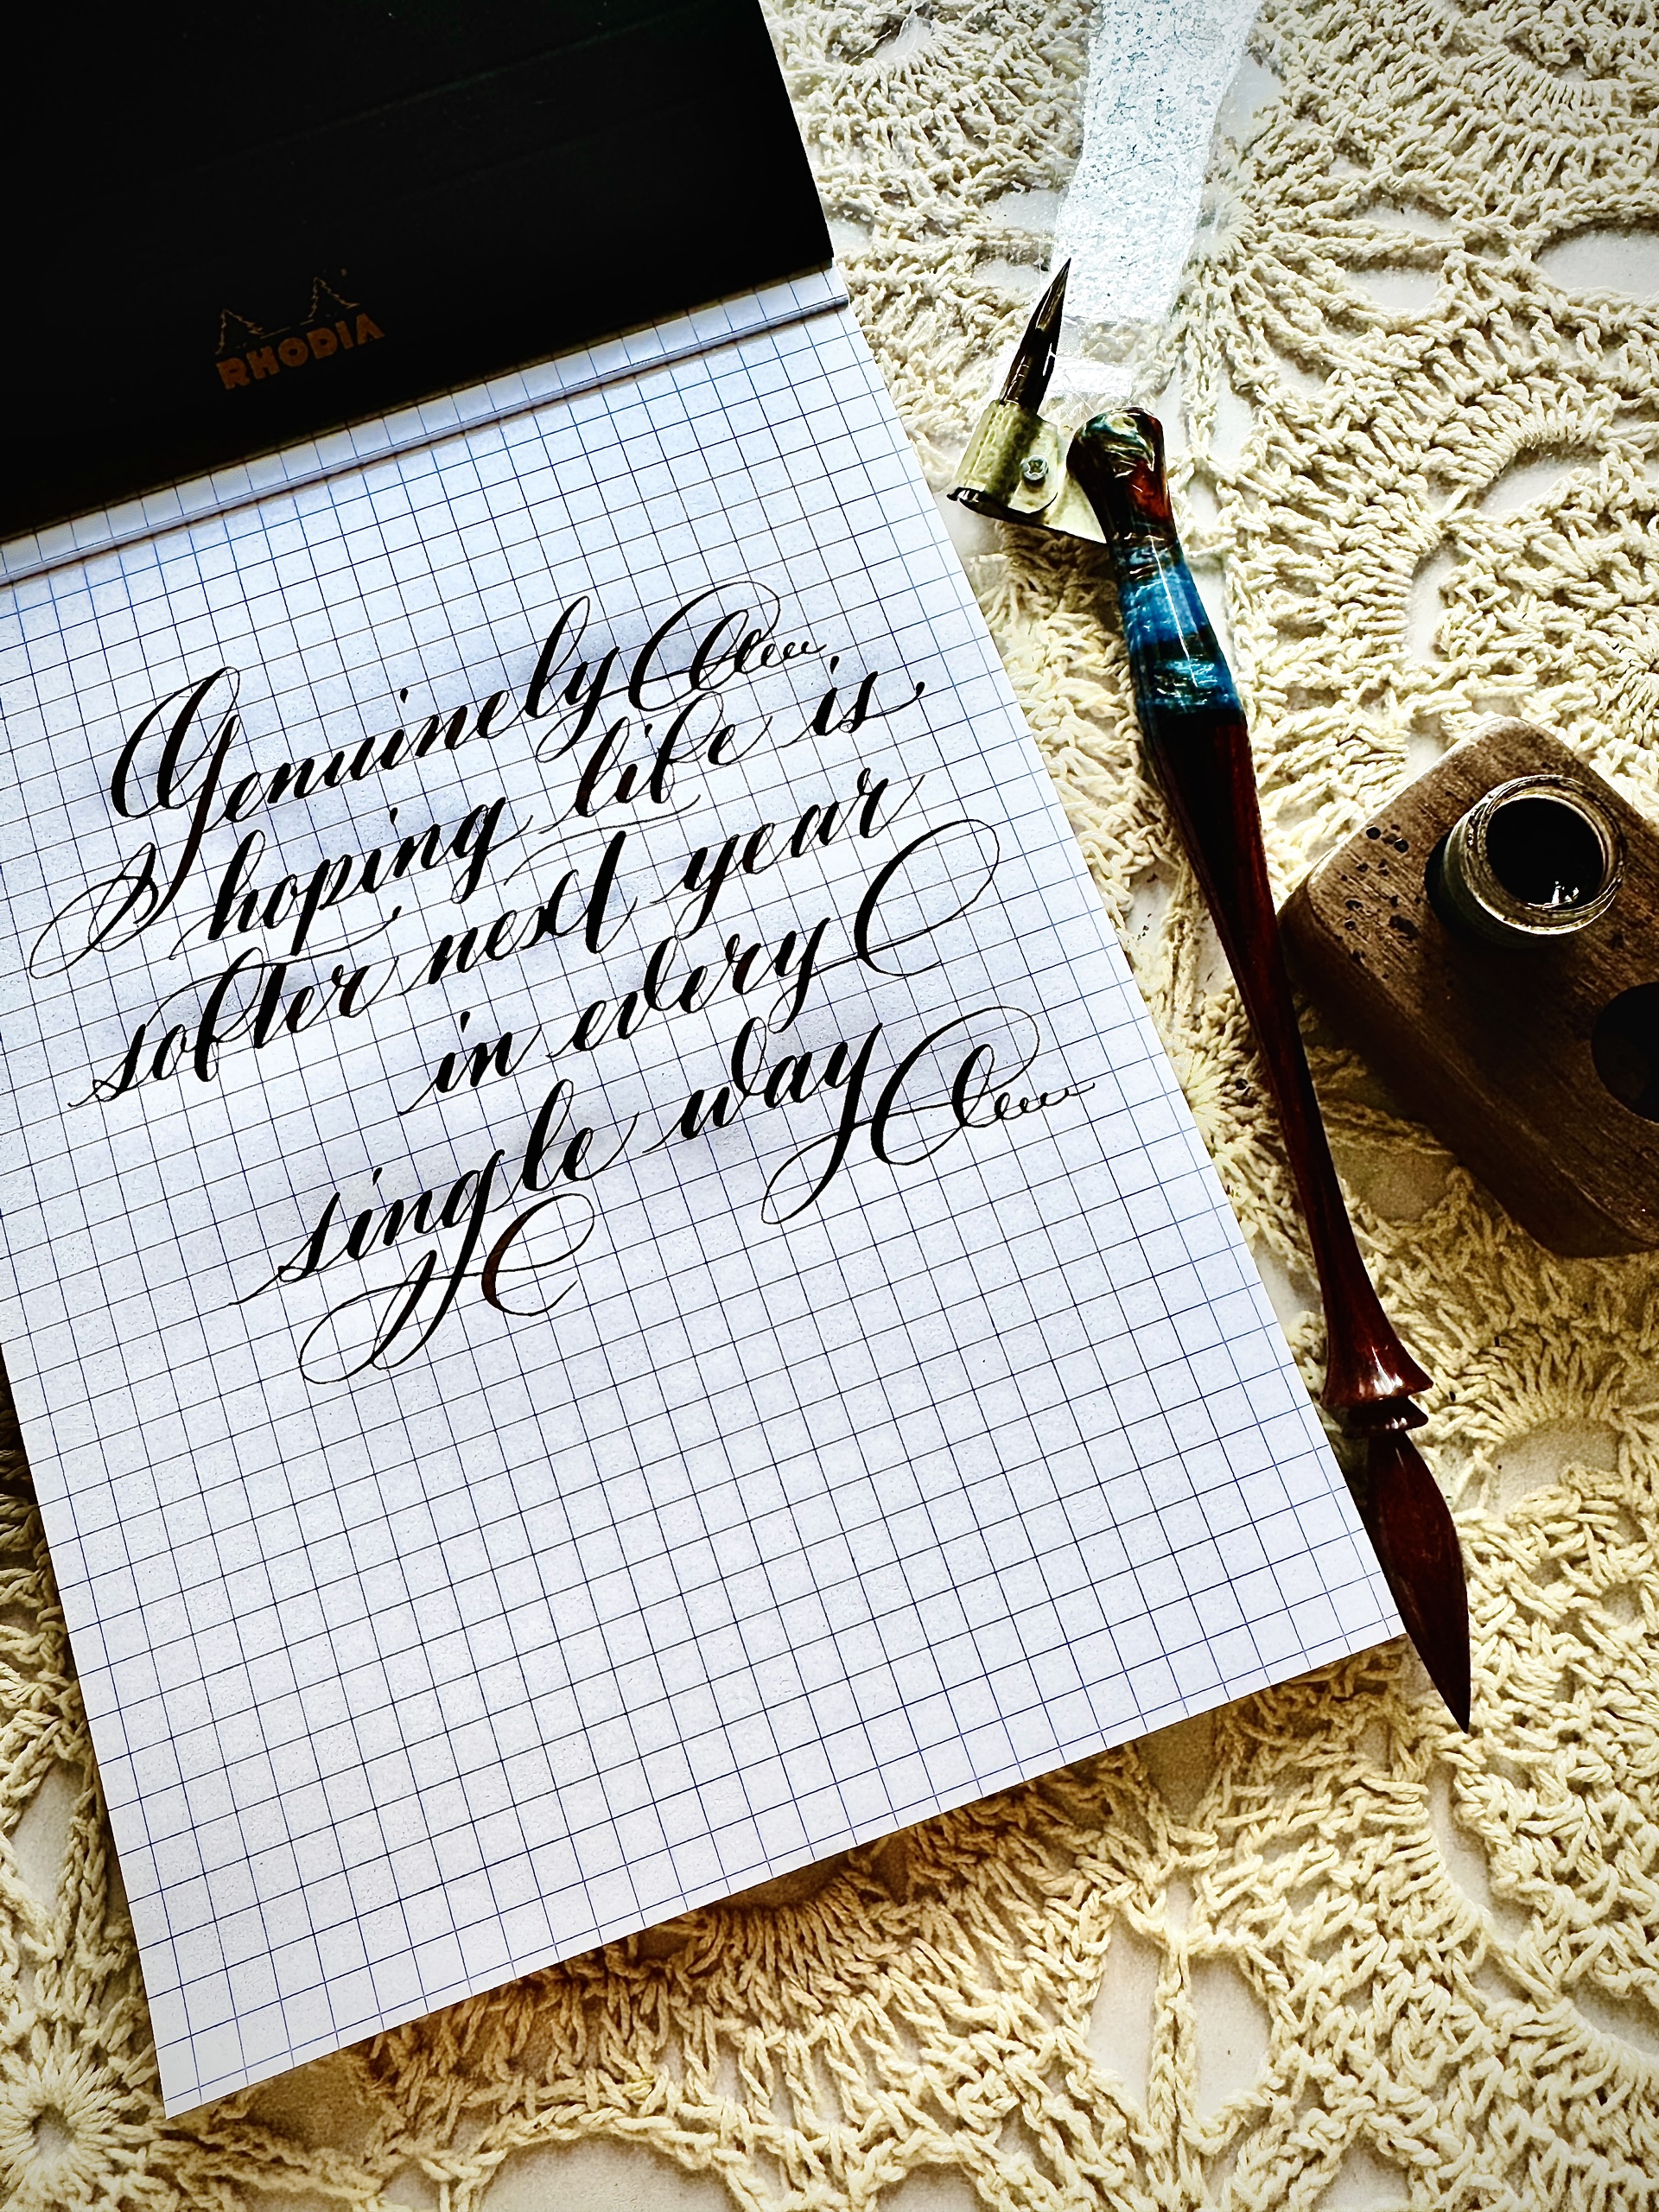 RHODIA
Genuinely
hoping life is
softer next year
in every
single way